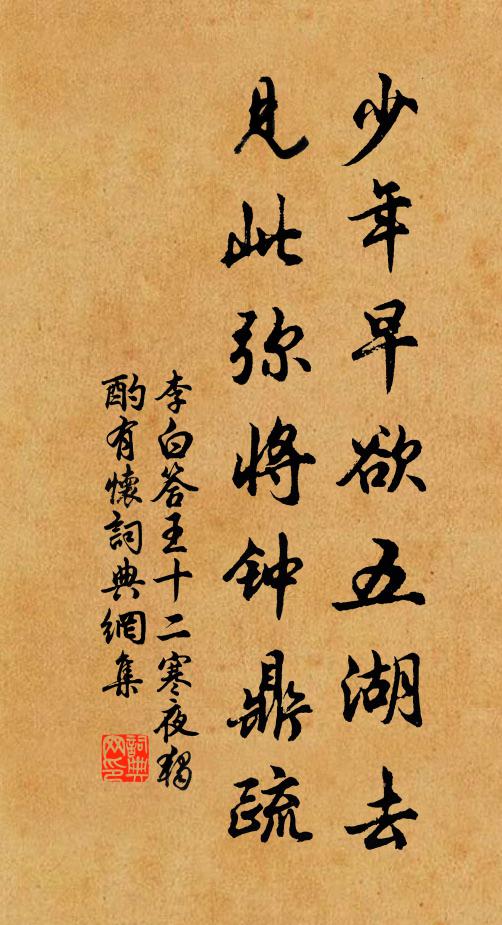 少年早欲五湖去
见此弥将钟鼎疏
李白答王十二寒夜独
酌有怀詞典網集
詞典
网印